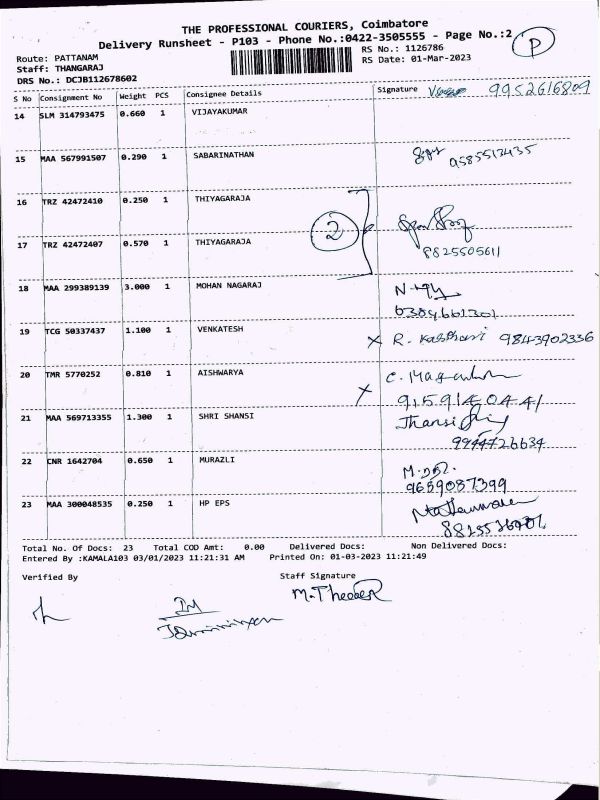 THE PROFESSIONAL COURIERS, Coimbatore
Delivery Runsheet - P103 - Phone No.:0422-3505555 - Page No.:2 P
Route: PATTANAM RS No.: 1126786
Staff: THANGARAJ RS Date: 01-Mar-2023
DRS No.: DCJB112678602
S No Consignment No Weight PCS Consignee Details Signature 9952616809
14 SLM 314793475 0.660 1 VIJAYAKUMAR
15 MAA 567991507 0.290 1 SABARINATHAN
9585513435
16 TRZ 42472410 0.250 1 THIYAGARAJA
2
17 TRZ 42472407 0.570 1 THIYAGARAJA
8825505611
18 MAA 299389139 3.000 1 MOHAN NAGARAJ
19 TCG 50337437 1.100 1 VENKATESH
X R. 9843902336
20 TMR 5770252 0.810 1 AISHWARYA
X 9159140441
21 MAA 569713355 1.300 1 SHRI SHANSI
9944726634
22 CNR 1642704 0.650 1 MURAZLI
9659087399
23 MAA 300048535 0.250 1 HP EPS
Total No. Of Docs: 23 Total COD Amt: 0.00 Delivered Docs: Non Delivered Docs:
Entered By :KAMALA103 03/01/2023 11:21:31 AM Printed On: 01-03-2023 11:21:49
Verified By Staff Signature